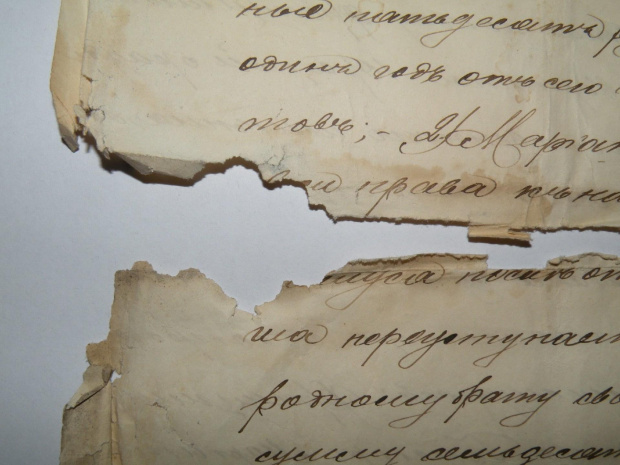 ные пятьдесятъ р
одинъ годъ отъ сего
товъ; - 2) Маріан
права къ на
уса послѣ от
ша переуступает
родному брату сво
сумму семьдесят